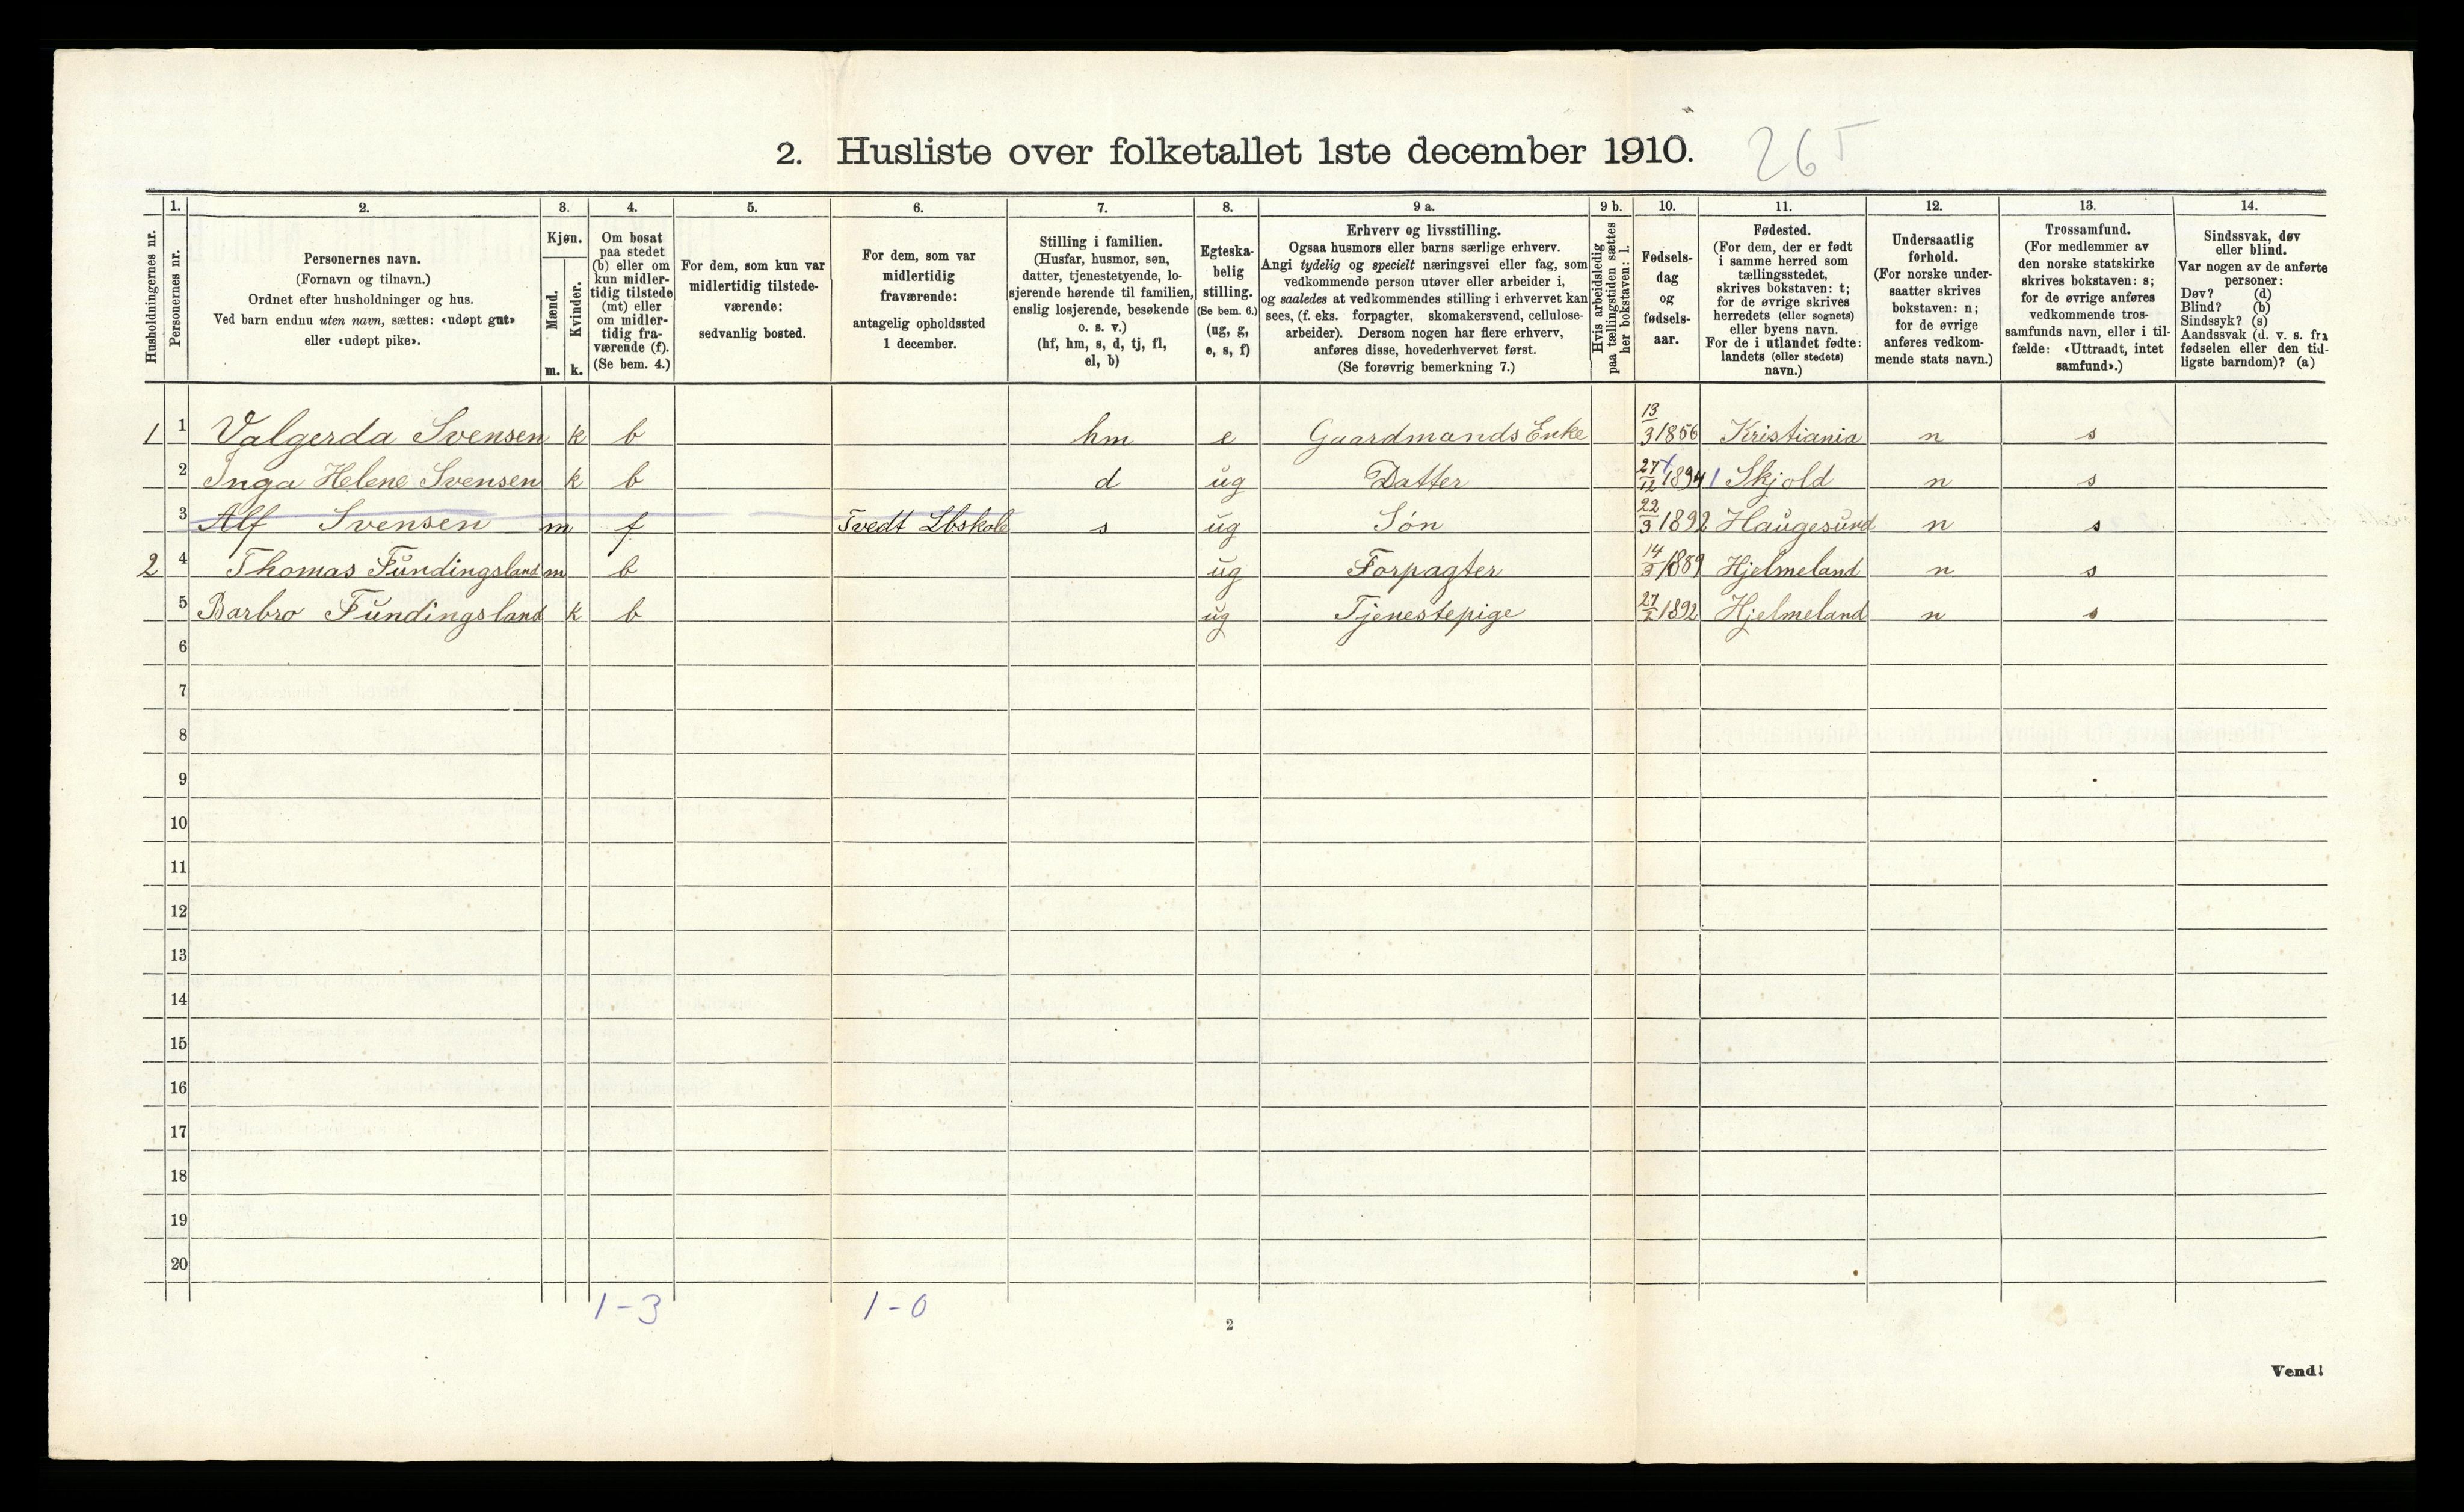 2. Husliste over folketallet 1ste december 1910. 265
Husholdningernes nr.
1.
Personernes nr.
2.
Personernes navn.
(Fornavn og tilnavn.)
Ordnet efter husholdninger og hus.
Ved barn endnu uten navn, sættes: «udøpt gut»
eller «udøpt pike».
3.
Kjøn.
Mænd.
m.
Kvinder.
k.
4.
Om bosat
paa stedet
(b) eller om
kun midler-
tidig tilstede
(mt) eller
om midler-
tidig fra-
værende (f).
(Se bem. 4.)
5.
For dem, som kun var
midlertidig tilstede-
værende:
sedvanlig bosted.
6.
For dem, som var
midlertidig
fraværende:
antagelig opholdssted
1 december.
7.
Stilling i familien.
(Husfar, husmor, søn,
datter, tjenestetyende, lo-
sjerende hørende til familien,
enslig losjerende, besøkende
o. s. v.)
(hf, hm, s, d, tj, fl,
el, b)
8.
Egteska-
belig
stilling.
(Se bem. 6.)
(ug, g,
e, s, f)
9 a.
Erhverv og livsstilling.
Ogsaa husmors eller barns særlige erhverv.
Angi tydelig og specielt næringsvei eller fag, som
vedkommende person utøver eller arbeider i,
og saaledes at vedkommendes stilling i erhvervet kan
sees, (f. eks. forpagter, skomakersvend, cellulose-
arbeider). Dersom nogen har flere erhverv,
anføres disse, hovederhvervet først.
(Se forøvrig bemerkning 7.)
9 b.
Hvis arbeidsledig
paa tællingstiden sættes
her bokstaven: l.
10.
Fødsels-
dag
og
fødsels-
aar.
11.
Fødested.
(For dem, der er født
i samme herred som
tællingsstedet,
skrives bokstaven: t;
for de øvrige skrives
herredets (eller sognets)
eller byens navn.
For de i utlandet fødte:
landets (eller stedets)
navn.)
12.
Undersaatlig
forhold.
(For norske under-
saatter skrives
bokstaven: n;
for de øvrige
anføres vedkom-
mende stats navn.)
13.
Trossamfund.
(For medlemmer av
den norske statskirke
skrives bokstaven: s;
for de øvrige anføres
vedkommende tros-
samfunds navn, eller i til-
fælde: «Uttraadt, intet
samfund».)
14.
Sindssvak, døv
eller blind.
Var nogen av de anførte
personer:
Døv? (d)
Blind? (b)
Sindssyk? (s)
Aandssvak (d. v. s. fra
fødselen eller den tid-
ligste barndom)? (a)
1 1 Valgerda Svensen k b hm e Gaardmands Enke 13/3 1856 Kristiania n s
2 Inga Helene Svensen k b d ug Datter 27/12 1894 Skjold n s
3 Alf Svensen m f Tvedt Lbskole s ug Søn 22/3 1892 Haugesund n s
2 4 Thomas Fundingsland m b ug Forpagter 14/3 1889 Hjelmeland n s
5 Barbro Fundingsland k b ug Tjenestepige 27/ 1892 Hjelmeland n s
6
7
8
9
10
11
12
13
14
15
16
17
18
19
20
1-3 1-0
2
Vend!